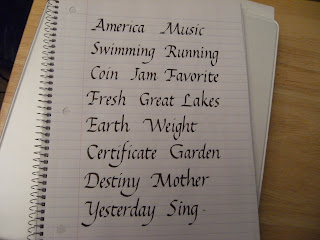 America Music
Swimming Running
Coin Jam Favorite
Fresh Great Lakes
Earth Weight
Certificate Garden
Destiny Mother
Yesterday Sing.